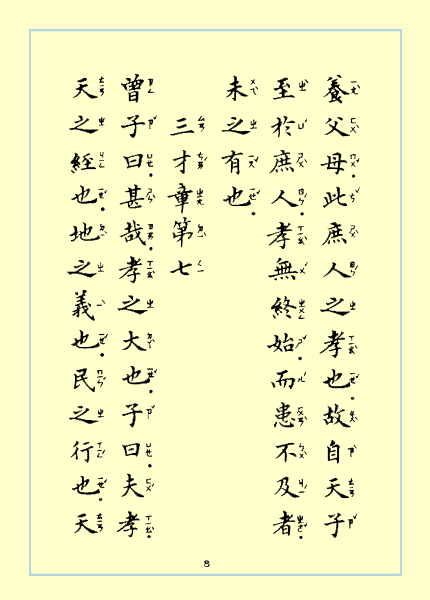 養父母。此庶人之孝也。故自天子
至於庶人。孝無終始。而患不及者。
未之有也。
三才章第七
曾子曰。甚哉。孝之大也。子曰。夫孝。
天之經也。地之義也。民之行也。天
8